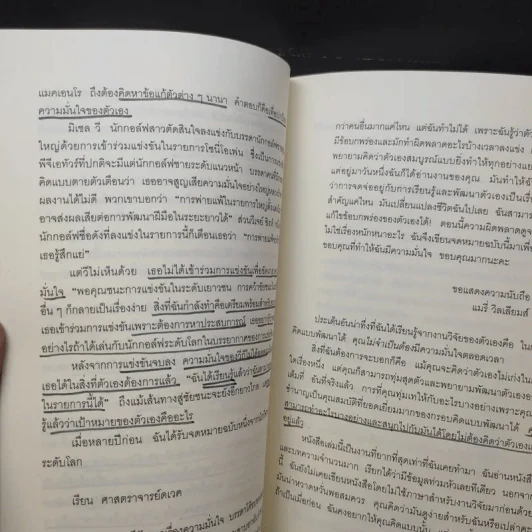 แมคเอนโร ถึงต้องคิดหาข้อแก้ตัวต่าง ๆ นานา คำตอบก็คือเพื่อ
ความมั่นใจของตัวเอง
มิเชล วี นักกอล์ฟสาวตัดสินใจลงแข่งกับบรรดานักกอล์ฟ
ใหญ่ด้วยการเข้าร่วมแข่งขันในรายการโซนี่โอเพ่น ซึ่งเป็นการ
พีจีเอทัวร์ที่ปกติจะมีแต่นักกอล์ฟชายระดับแนวหน้า บรรดา
คิดแบบตายตัวเตือนว่า เธออาจสูญเสียความมั่นใจอย่างใหญ่
ผลงานได้ไม่ดี พวกเขาบอกว่า "การพ่ายแพ้ในรายการใหญ่
อาจส่งผลเสียต่อการพัฒนาฝีมือในระยะยาวได้" ส่วนวีเจย์ ซิงห์
นักกอล์ฟชื่อดังที่ลงแข่งในรายการนี้ก็เตือนเธอว่า "การพ่ายแพ้
เธอรู้สึกแย่"
แต่วีไม่เห็นด้วย เธอไม่ได้เข้าร่วมการแข่งขันเพื่อ
มั่นใจ "พอคุณชนะการแข่งขันในระดับเยาวชน การคว้าชัยชนะ
อื่น ๆ ก็กลายเป็นเรื่องง่าย สิ่งที่ฉันกำลังทำคือเตรียมพร้อมสำหรับ
เธอเข้าร่วมการแข่งขันเพราะต้องการหาประสบการณ์
อย่างไรถ้าได้เล่นกับนักกอล์ฟระดับโลกในบรรยากาศของการ
หลังจากการแข่งขันจบลง ความมั่นใจของวีก็ไม่ได้
เธอได้ในสิ่งที่ตัวเองต้องการแล้ว "ฉันได้เรียนรู้แล้วว่าฉัน
ในรายการนี้ได้" ถึงแม้เส้นทางสู่ชัยชนะจะยังอีกยาวไกล
รู้แล้วว่าเป้าหมายของตัวเองคืออะไร
เมื่อหลายปีก่อน ฉันได้รับจดหมายฉบับหนึ่งจาก
ระดับโลก
เรียน ศาสตราจารย์ดเวค
เรื่องความมั่นใจ
กว่าคนอื่นมากแค่ไหน แต่ฉันทำไม่ได้ เพราะฉันรู้ว่าตัว
มีข้อบกพร่องและมักทำผิดพลาดอะไรบ้างเวลาลงแข่ง
พยายามคิดว่าตัวเองสมบูรณ์แบบยิ่งทำให้ทุกอย่างแย่
แต่อยู่มาวันหนึ่งฉันก็ได้อ่านงานของคุณ มันทำให้ฉัน
ว่าการจดจ่ออยู่กับการเรียนรู้และพัฒนาตัวเองเป็นเรื่อง
สำคัญแค่ไหน มันเปลี่ยนแปลงชีวิตฉันไปเลย ฉันสามารถ
แก้ไขข้อบกพร่องของตัวเองได้! ตอนนี้ความผิดพลาดดูจะ
ไม่ใช่เรื่องหนักหนาอะไร ฉันจึงเขียนจดหมายฉบับนี้มาเพื่อ
ขอบคุณที่ทำให้ฉันมีความมั่นใจ ขอบคุณมากนะคะ
ขอแสดงความนับถือ
แมรี่ วิลเลียมส์
ประเด็นอันน่าทึ่งที่ฉันได้เรียนรู้จากงานวิจัยของตัวเองคือ
คิดแบบพัฒนาได้ คุณไม่จำเป็นต้องมีความมั่นใจตลอดเวลา
สิ่งที่ฉันต้องการจะบอกก็คือ แม้คุณจะคิดว่าตัวเองไม่เก่งใน
ใดเรื่องหนึ่ง แต่คุณก็สามารถทุ่มสุดตัวและพยายามพัฒนาตัวเองอย่าง
เต็มที่ อันที่จริงแล้ว การที่คุณทุ่มเทให้กับอะไรบางอย่างเพราะคุณ
ชำนาญเป็นคุณสมบัติที่ยอดเยี่ยมมากของกรอบคิดแบบพัฒนาได้
สามารถทำอะไรบางอย่างและสนุกไปกับมันได้โดยไม่ต้องคิดว่าตัวเอง
อยู่แล้ว
หนังสือเล่มนี้เป็นงานที่ยากที่สุดเท่าที่ฉันเคยทำมา ฉันอ่านหนังสือ
และบทความจำนวนมาก เรียกได้ว่ามีข้อมูลท่วมหัวเลยทีเดียว นอกจาก
นี้ ฉันยังไม่เคยเขียนหนังสือโดยไม่ใช้ภาษาสำหรับงานวิจัยมาก่อน
มันน่าหวาดหวั่นพอสมควร คุณคิดว่ามันดูง่ายสำหรับฉันหรือเปล่า
ถ้าเป็นเมื่อก่อน ฉันคงอยากให้คุณคิด